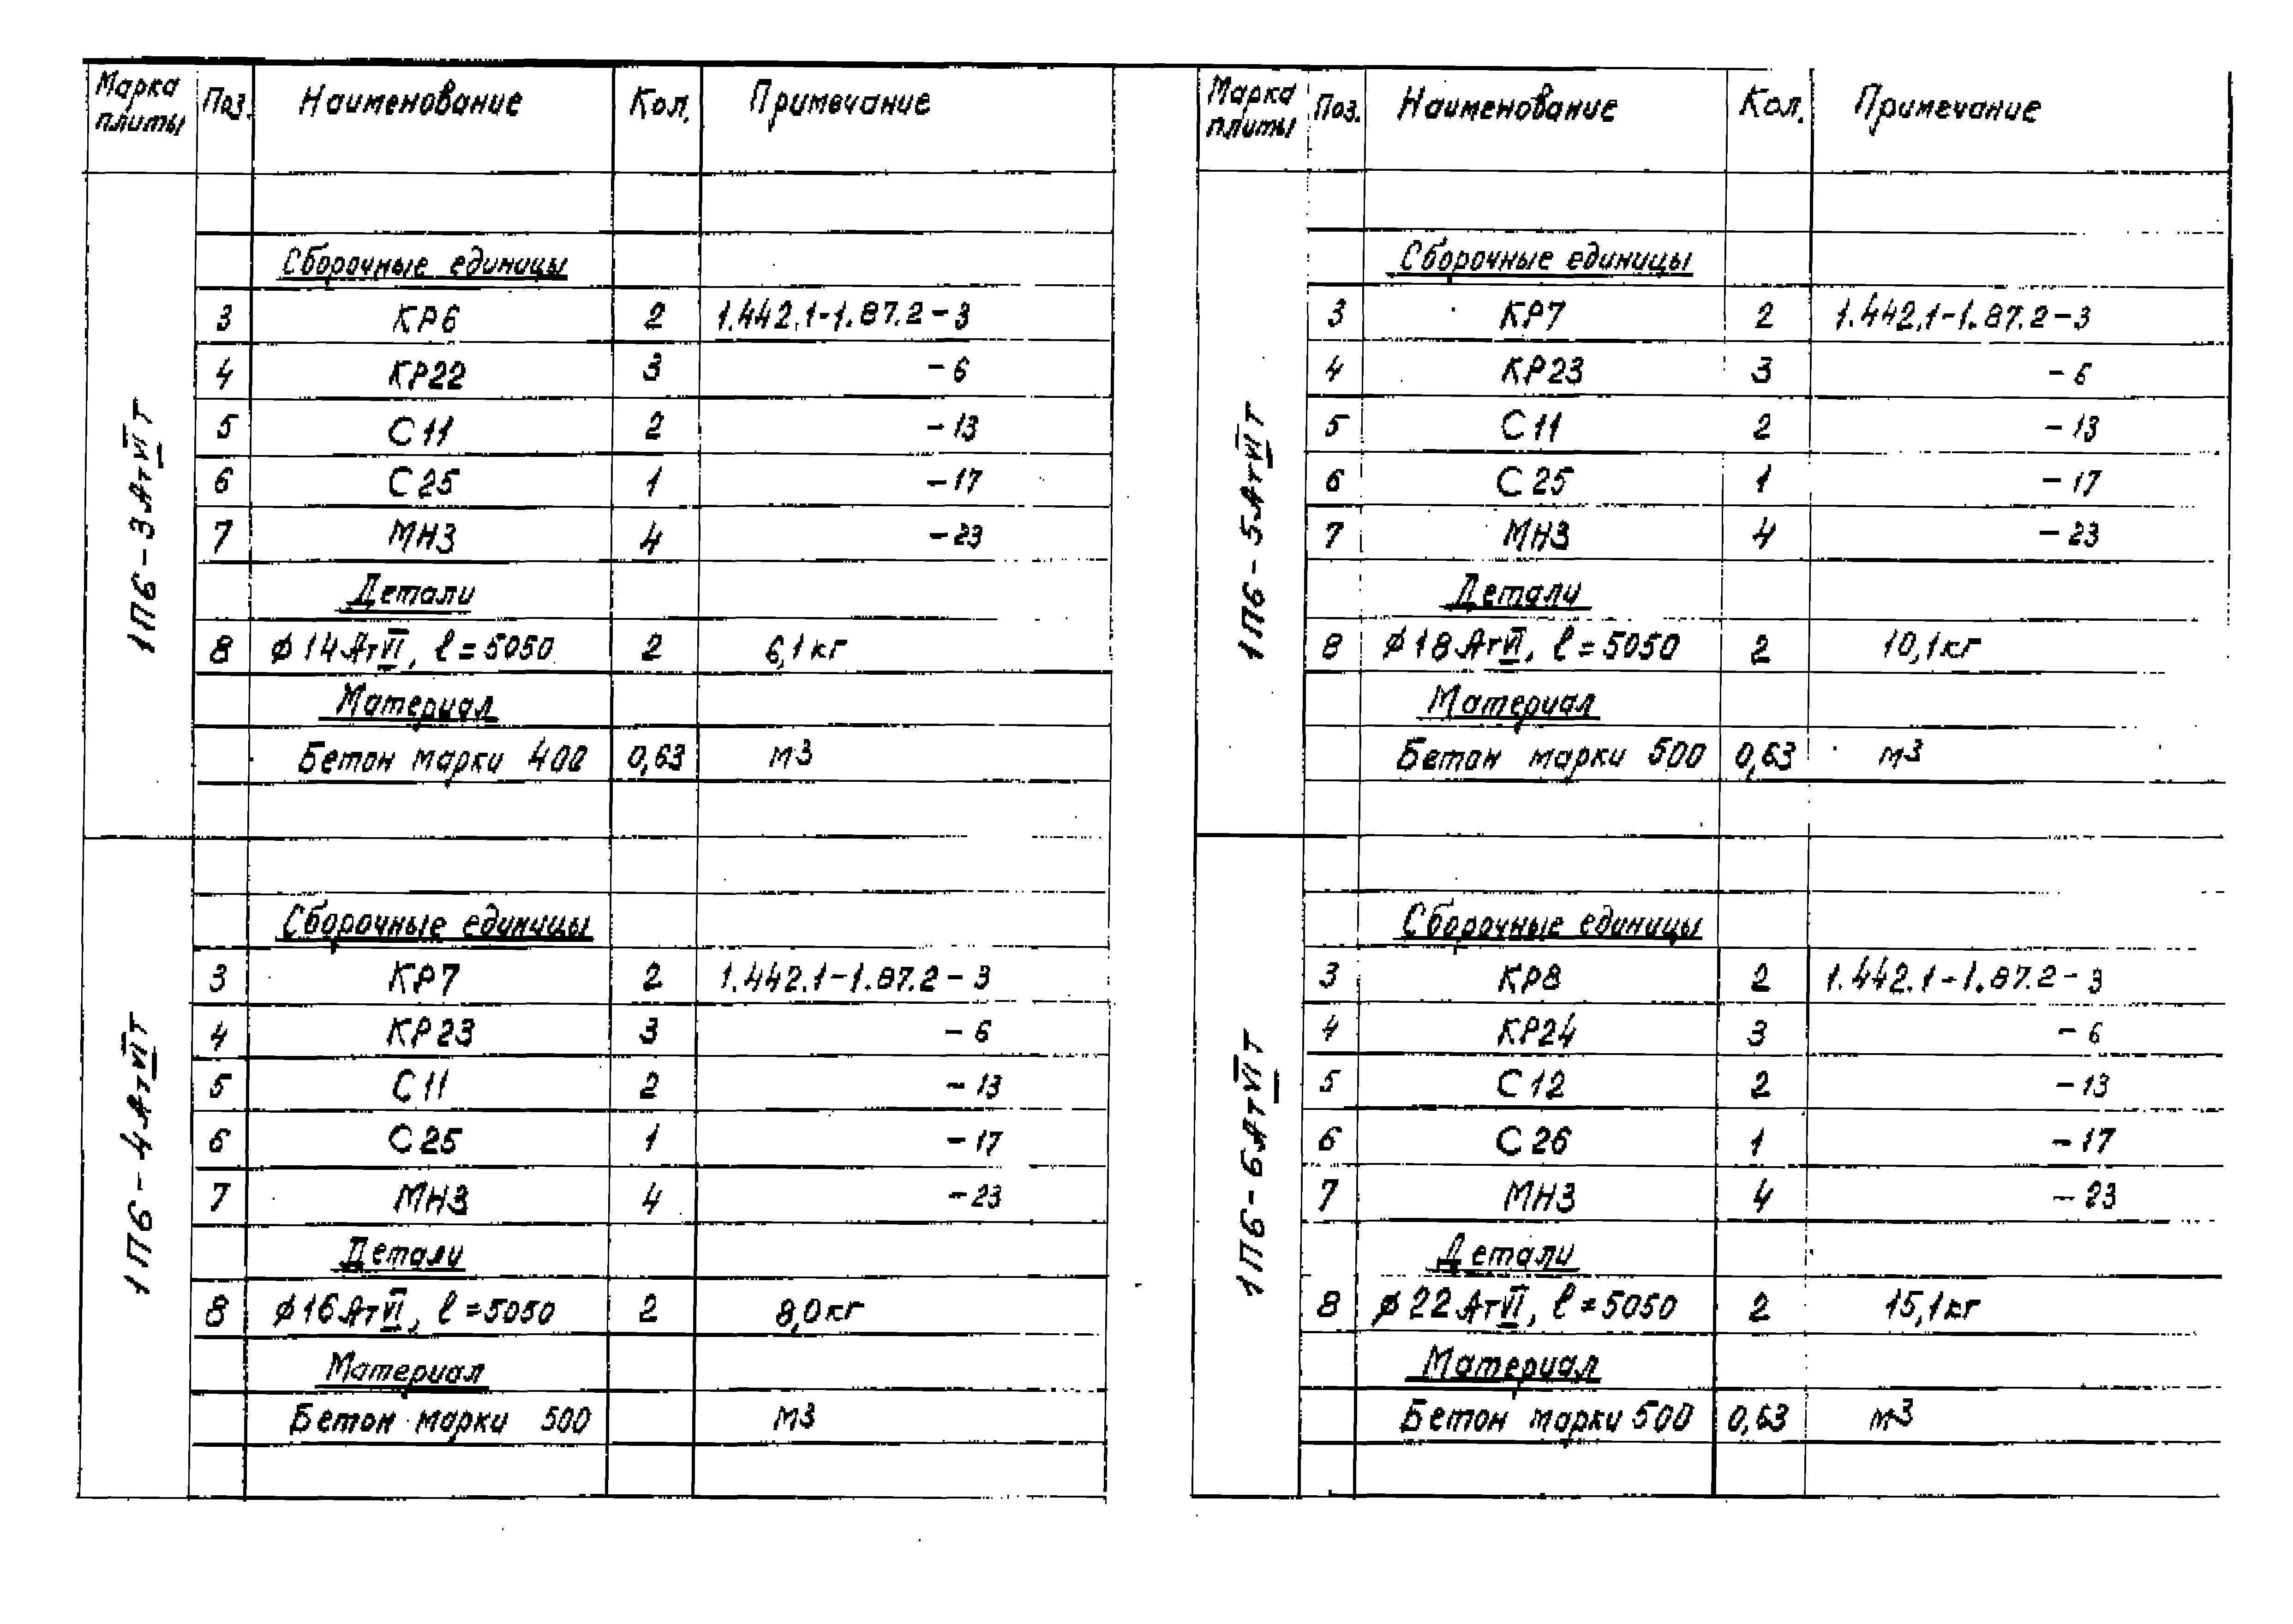 Марка плиты Поз. Наименование Кол. Примечание
1П6-3АтVIТ
Сборочные единицы
3 КР6 2 1.442.1-1.87.2-3
4 КР22 3 -6
5 С11 2 -13
6 С25 1 -17
7 МН3 4 -23
Детали
8 ϕ14АтVI, ℓ=5050 2 6,1кг
Материал
Бетон марки 400 0,63 м3
1П6-4АтVIТ
Сборочные единицы
3 КР7 2 1.442.1-1.87.2-3
4 КР23 3 -6
5 С11 2 -13
6 С25 1 -17
7 МН3 4 -23
Детали
8 ϕ16АтVI, ℓ=5050 2 8,0кг
Материал
Бетон марки 500 м3
Марка плиты Поз. Наименование Кол. Примечание
1П6-5АтVIТ
Сборочные единицы
3 КР7 2 1.442.1-1.87.2-3
4 КР23 3 -6
5 С11 2 -13
6 С25 1 -17
7 МН3 4 -23
Детали
8 ϕ18АтVI, ℓ=5050 2 10,1кг
Материал
Бетон марки 500 0,63 м3
1П6-6АтVIТ
Сборочные единицы
3 КР8 2 1.442.1-1.87.2-3
4 КР24 3 -6
5 С12 2 -13
6 С26 1 -17
7 МН3 4 -23
Детали
8 ϕ22АтVI, ℓ=5050 2 15,1кг
Материал
Бетон марки 500 0,63 м3